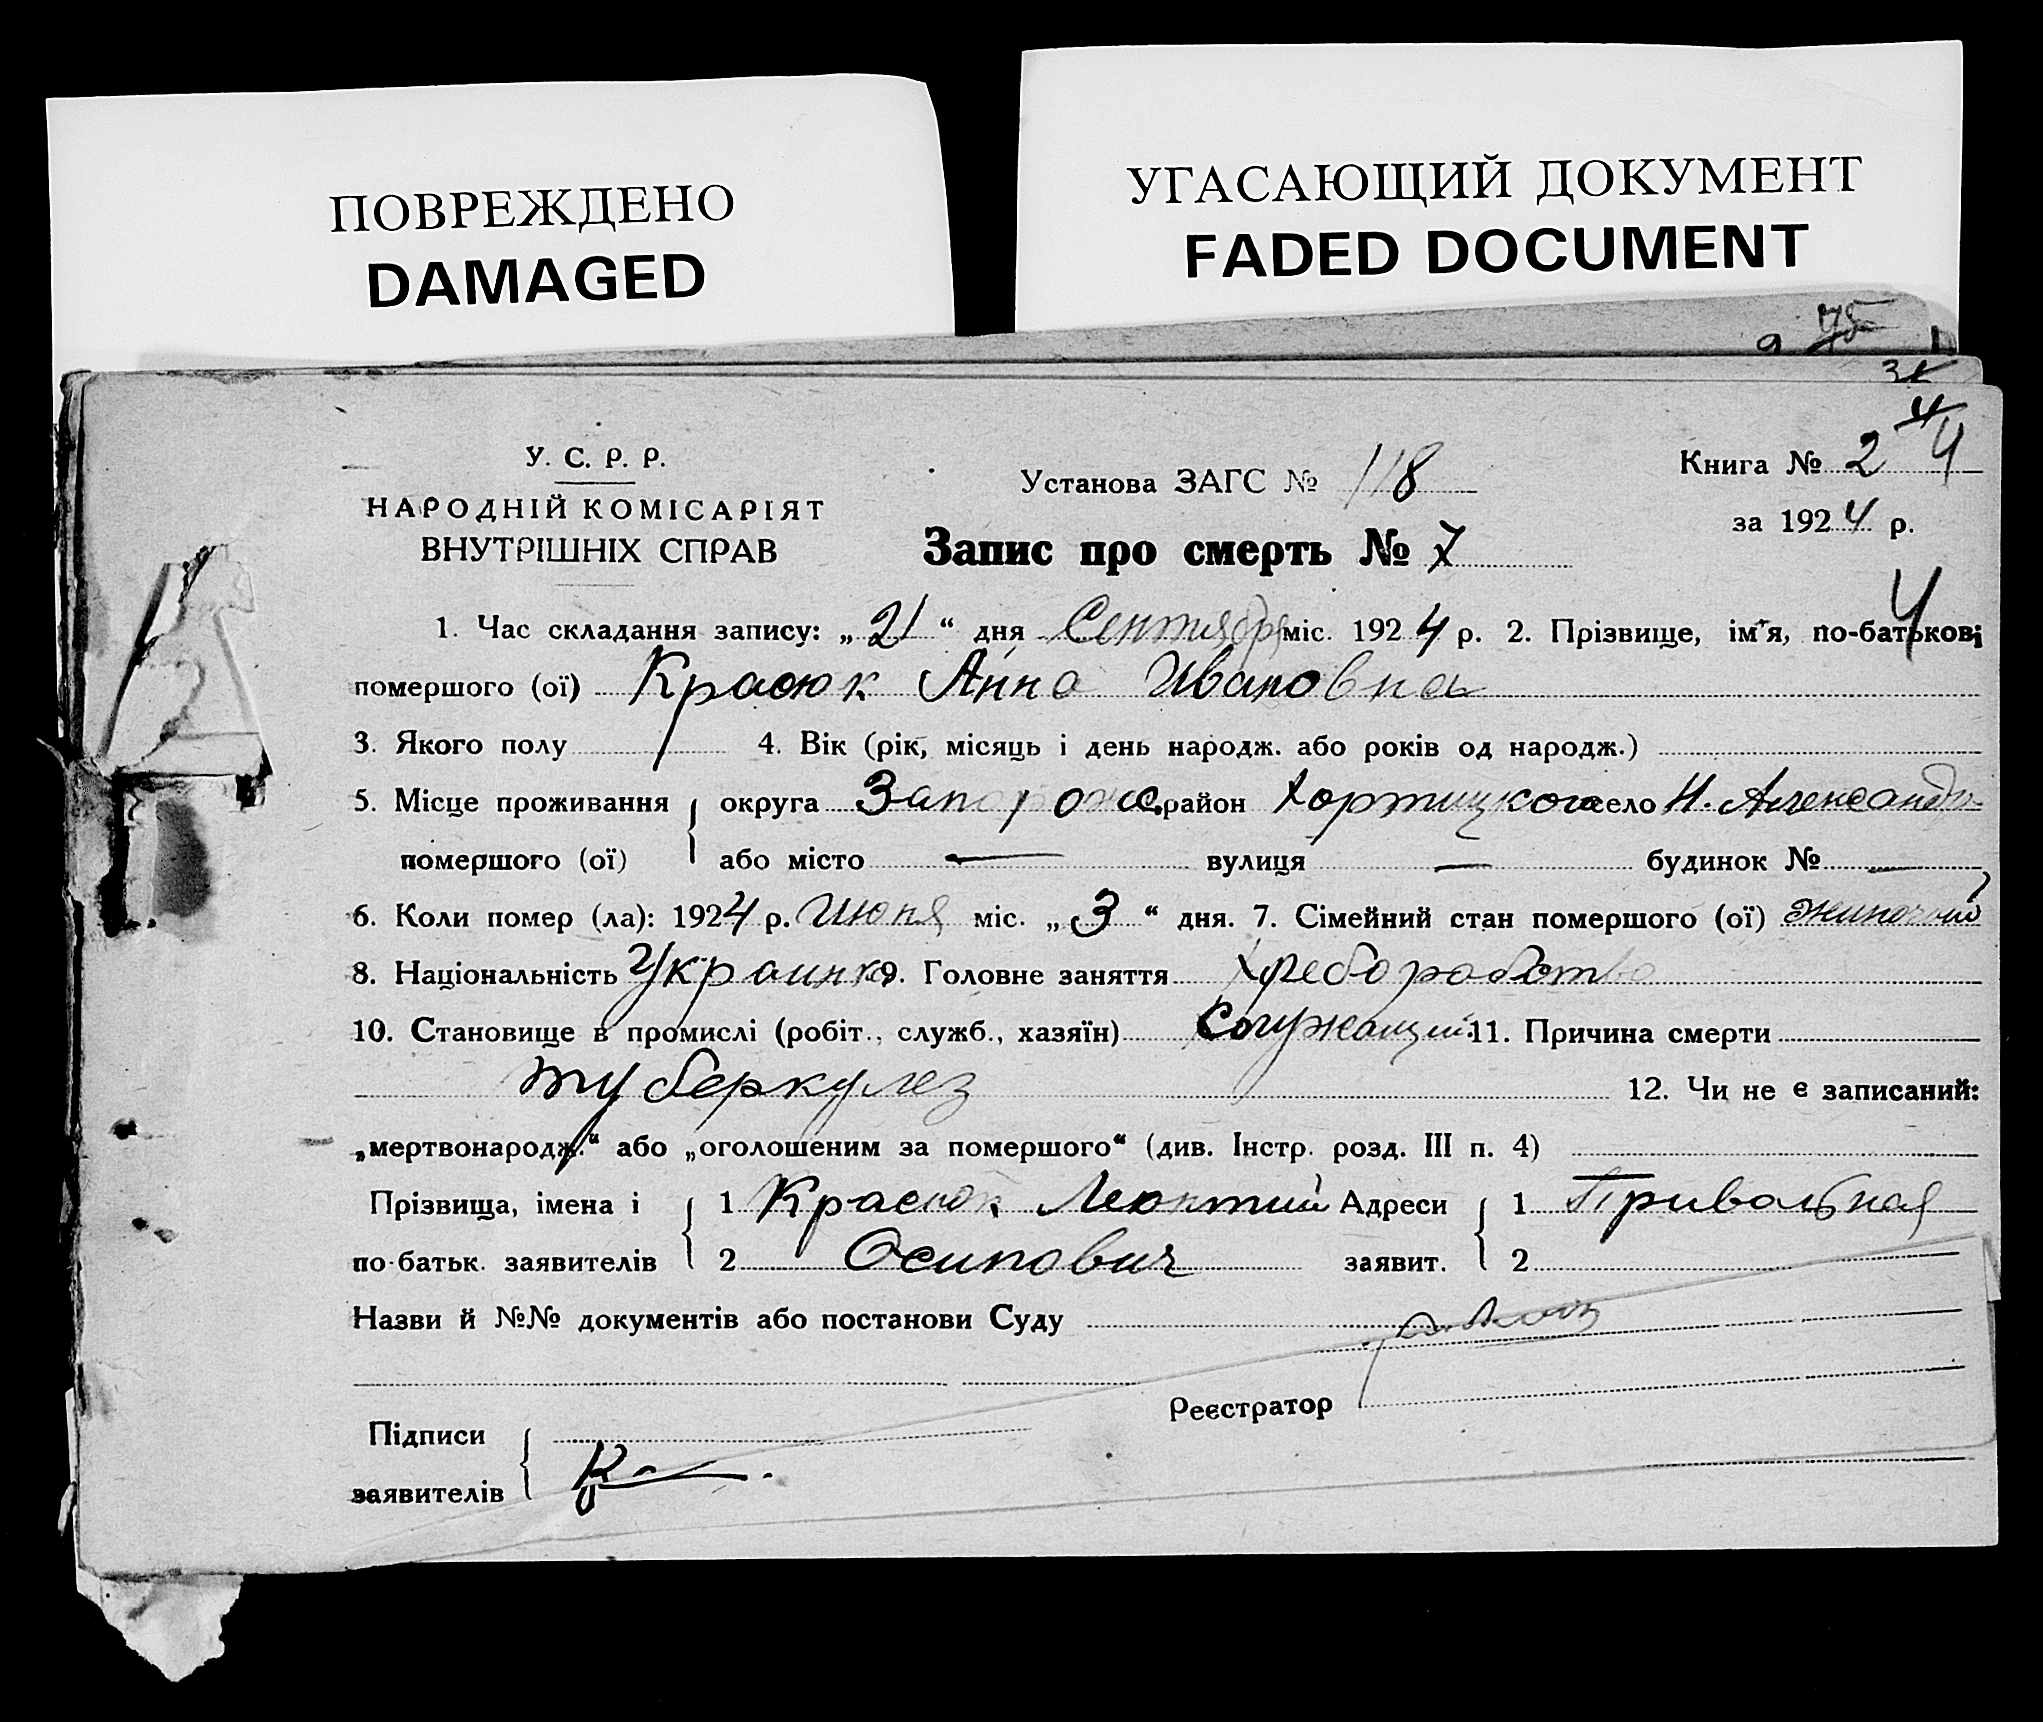 ПОВРЕЖДЕНО
DAMAGED
УГАСАЮЩИЙ ДОКУМЕНТ
FADED DOCUMENT
У. С. Р. Р.
НАРОДНІЙ КОМІСАРІЯТ
ВНУТРІШНІХ СПРАВ
Установа ЗАГС № 118
Книга № 2
за 1924 р.
Запис про смерть № 7
4
1. Час складання запису: „21“ дня Сентября міс. 1924 р. 2. Прізвище, ім'я, по-батькові
помершого (ої) Красюк Анна Ивановна
3. Якого полу 4. Вік (рік, місяць і день народж. або років од народж.)
5. Місце проживання округа Запорож. район Хортицкого село Н. Александр
помершого (ої) або місто — вулиця — будинок № —
6. Коли помер (ла): 1924 р. Июня міс. „3“ дня. 7. Сімейний стан помершого (ої)
8. Національність Украинка 9. Головне заняття Хлеборобство
10. Становище в промислі (робіт., служб., хазяїн) 11. Причина смерти
туберкулез 12. Чи не є записаний:
„мертвонародж.“ або „оголошеним за помершого“ (див. Інстр. розд. III п. 4)
Прізвища, імена і 1 Красюк Леонтий Адреси 1 Привольная
по-батьк. заявителів 2 Осипович заявит. 2
Назви й №№ документів або постанови Суду
Реєстратор
Підписи
заявителів